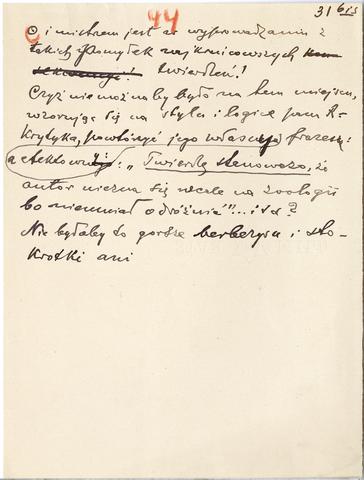 44
31 bis
i mistrzem jest w wyprowadzaniu z
takich pomyłek najkrańcowszych
twierdzeń!
Czyż nie można by było na tem miejscu,
wzorując się na stylu i logice pana R-
Krytyka, powtórzyć jego własną frazesą:
a efektowną: „Twierdzę stanowczo, że
autor nie zna się wcale na zoologii
bo nie umiał odróżnić"... itd?
Nie byłaby to gorsze berbezym i sto-
krotki ani